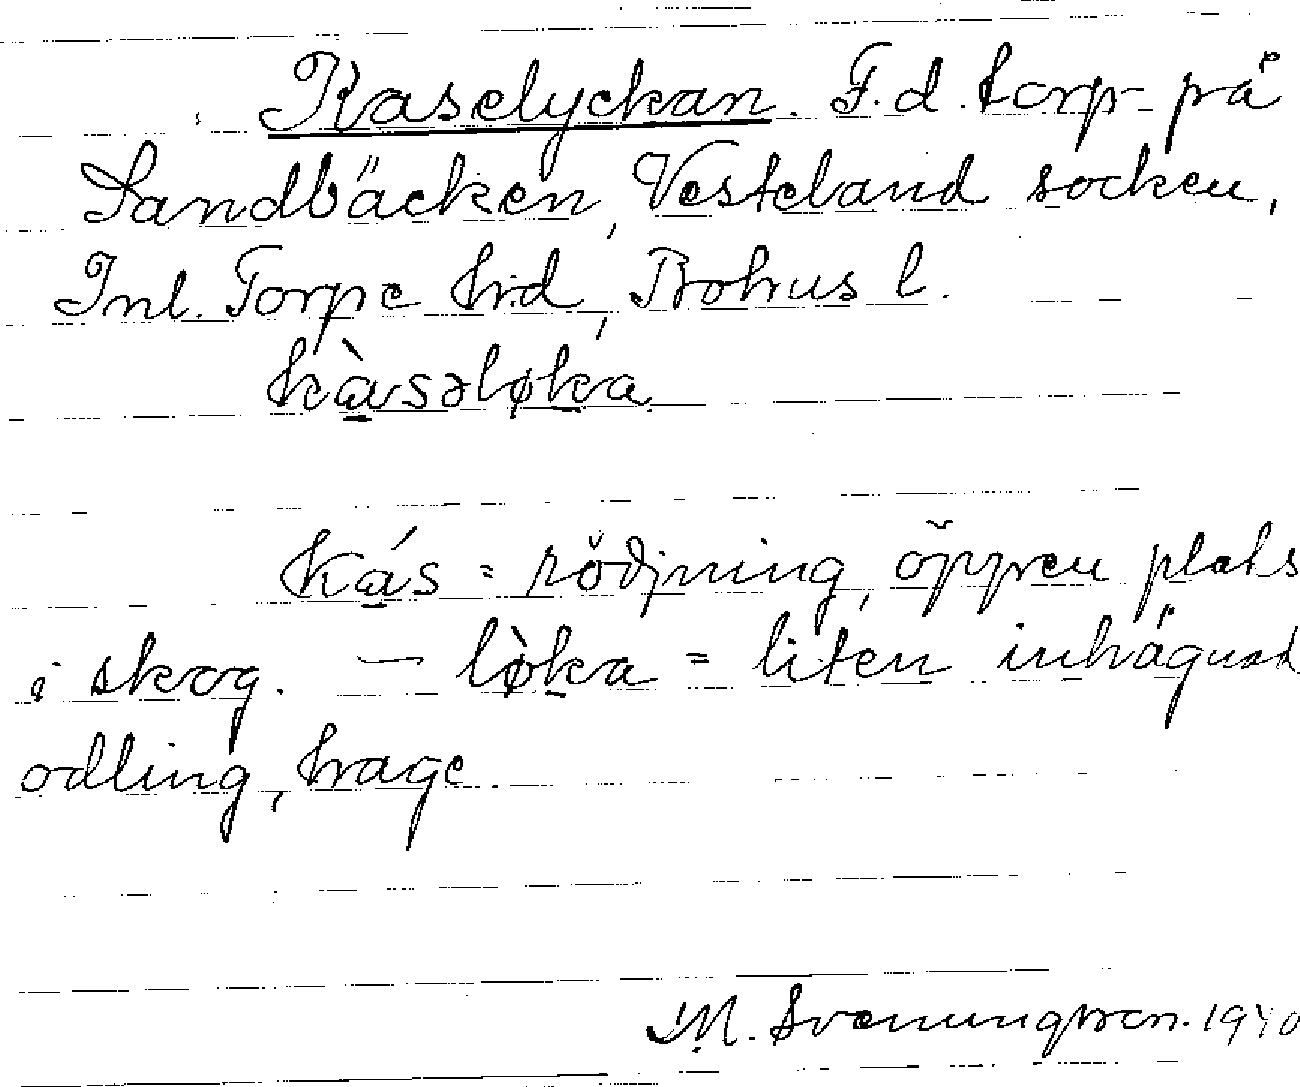 Kaselyckan. F.d. torp på
Sandbäcken, Vesteland socken,
Inl. Torpe hrd, Bohus l.
kàsəløka
Kás = rödjning, öppen plats
i skog. — lòka = liten inhägnad
odling, hage.
M. Svenungsson. 1940